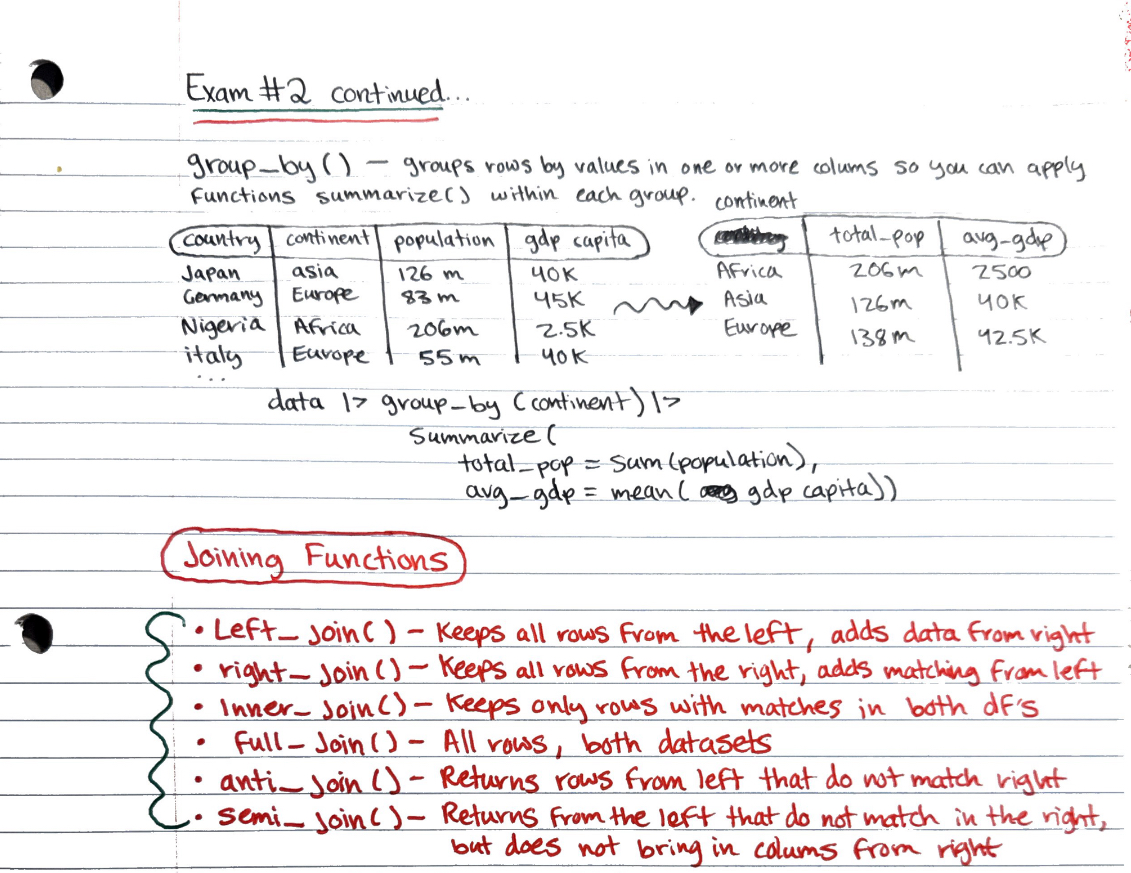 Exam #2 continued...
group_by() — groups rows by values in one or more colums so you can apply
functions summarize() within each group.
continent
country continent population gdp capita
total_pop avg-gdp
Japan asia 126 m 40K
Africa 206m 2500
Germany Europe 83 m 45K
Asia 126m 40K
Nigeria Africa 206m 2.5K
Europe 138m 42.5K
italy Europe 55 m 40K
...
data |> group_by (continent) |>
summarize(
total_pop = sum(population),
avg_gdp = mean( gdp capita))
Joining Functions
• Left_join() – Keeps all rows from the left, adds data from right
• right_join() – Keeps all rows from the right, adds matching from left
• Inner_join() – Keeps only rows with matches in both df's
• Full_Join() – All rows, both datasets
• anti_join() – Returns rows from left that do not match right
• semi_join() – Returns from the left that do not match in the right,
but does not bring in colums from right